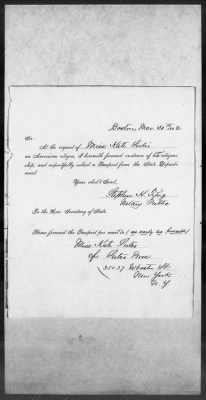 Boston, Mar 20th
Sir
At the request of Miss Kate Peters
an American citizen, I herewith forward evidence of his citizen-
ship, and respectfully solicit a Passport from the State Depart-
ment.
Your obed't Serv't,
Stephen H.
Notary Public
To the Hon. Secretary of State
Please forward the Passport per mail to (as early as possible)
Miss Kate Peters
c/o Peters Bros
35 & 37 Wooster St
New York
N. Y.